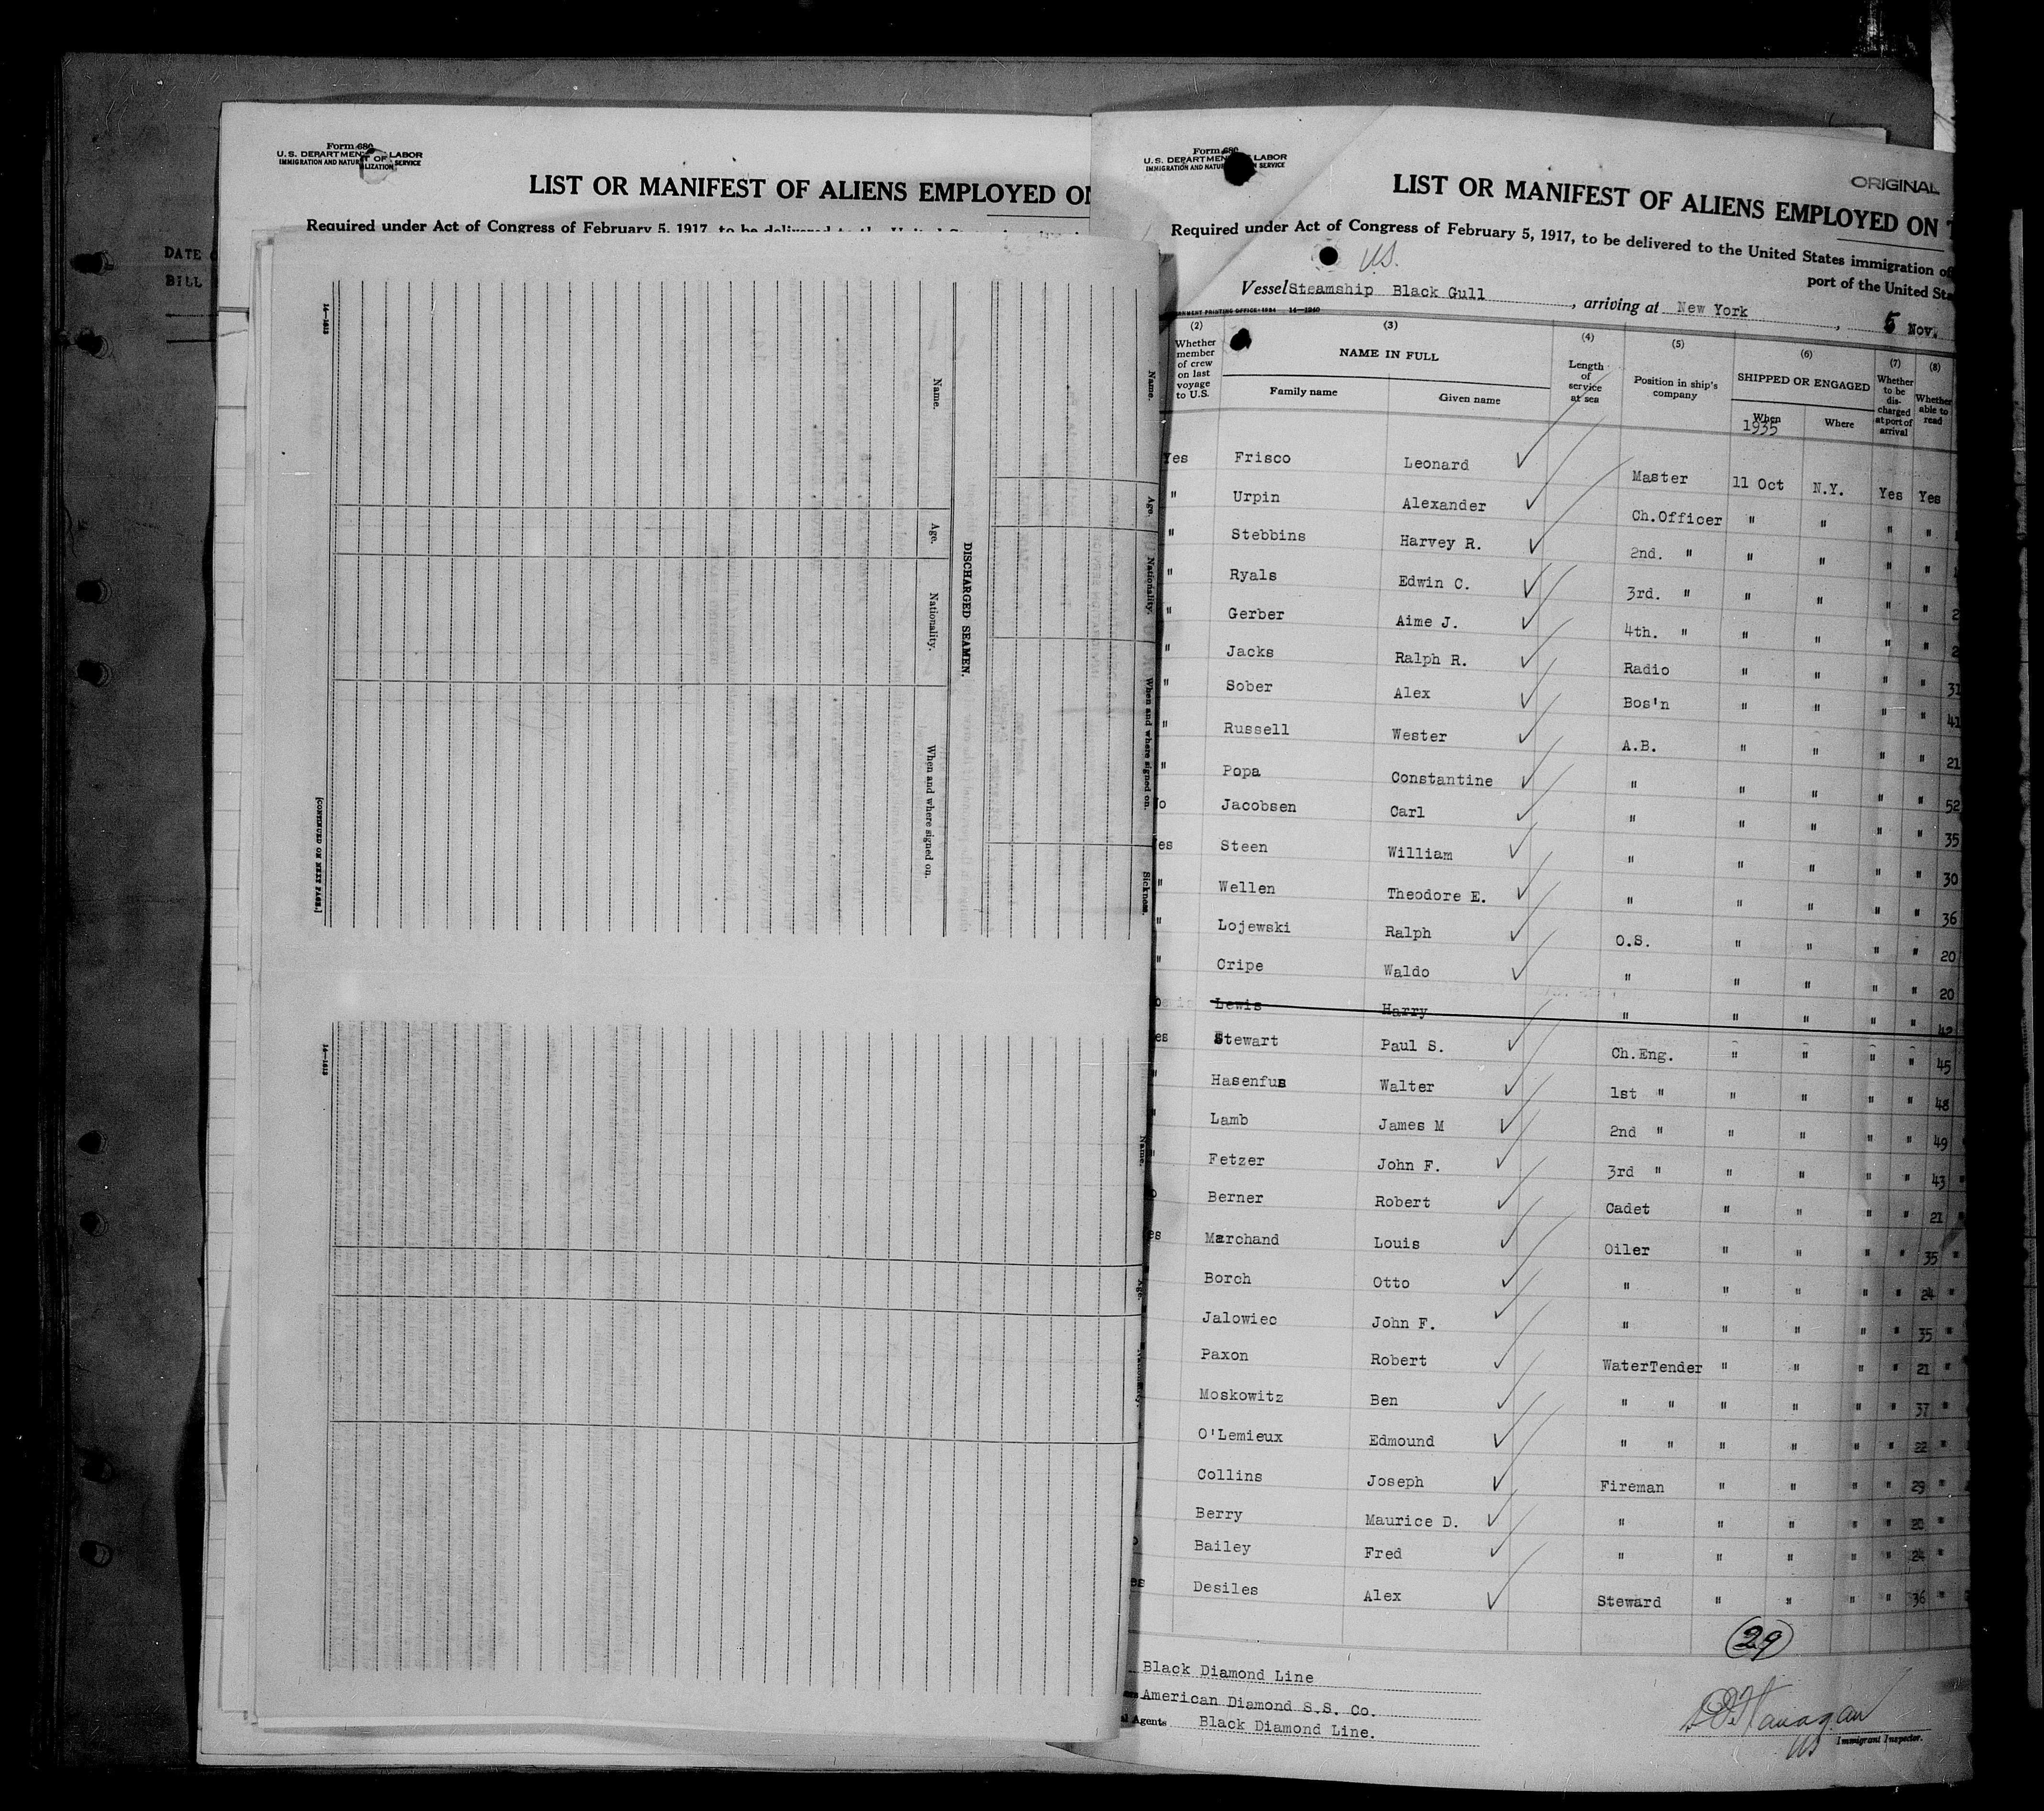 DATE
BILL
Form 680
U.S. DEPARTMENT OF LABOR
IMMIGRATION AND NATURALIZATION SERVICE
LIST OR MANIFEST OF ALIENS EMPLOYED ON
Required under Act of Congress of February 5, 1917, to be delivered to the United States
14—1613
Name.
Age.
Nationality.
When and where signed on.
[CONTINUED ON NEXT PAGE.]
DISCHARGED SEAMEN.
Name.
Age.
Nationality.
When and where signed on.
Sickness.
14—1613
Name.
Age.
Nationality.
Form 680
U.S. DEPARTMENT LABOR
IMMIGRATION AND NATUR SERVICE
ORIGINAL
LIST OR MANIFEST OF ALIENS EMPLOYED ON T
Required under Act of Congress of February 5, 1917, to be delivered to the United States immigration of
port of the United Sta
U.S.
Vessel Steamship Black Gull, arriving at New York, 5 Nov.
(2) (3) (4) (5) (6) (7) (8)
Whether member of crew on last voyage to U.S.
NAME IN FULL
Family name Given name
Length of service at sea
Position in ship's company
SHIPPED OR ENGAGED
When Where
1935
Whether to be discharged at port of arrival
Whether able to read
Yes Frisco Leonard Master 11 Oct N.Y. Yes Yes
" Urpin Alexander Ch.Officer " " " "
" Stebbins Harvey R. 2nd. " " " " "
" Ryals Edwin C. 3rd. " " " " "
" Gerber Aime J. 4th. " " " " "
" Jacks Ralph R. Radio " " " " 31
" Sober Alex Bos'n " " " " 41
" Russell Wester A.B. " " " " 21
" Popa Constantine " " " " " 52
o Jacobsen Carl " " " " " 35
es Steen William " " " " " 30
" Wellen Theodore E. " " " " " 36
" Lojewski Ralph O.S. " " " " 20
" Cripe Waldo " " " " " 20
o Lewis Harry " " " " " 42
es Stewart Paul S. Ch.Eng. " " " " 45
" Hasenfus Walter 1st " " " " " 48
" Lamb James M 2nd " " " " " 49
" Fetzer John F. 3rd " " " " " 43
o Berner Robert Cadet " " " " 21
es Marchand Louis Oiler " " " " 35 "
Borch Otto " " " " " 24 "
Jalowiec John F. " " " " " 35 "
Paxon Robert WaterTender " " " " 21 "
Moskowitz Ben " " " " " " 37 "
O'Lemieux Edmound " " " " " " 22 "
Collins Joseph Fireman " " " " 29 "
Berry Maurice D. " " " " " 20 "
o Bailey Fred " " " " " 24 "
es Desiles Alex Steward " " " " 36 "
29
Black Diamond Line
American Diamond S.S. Co.
al Agents Black Diamond Line.
Flanagan
US
Immigrant Inspector.